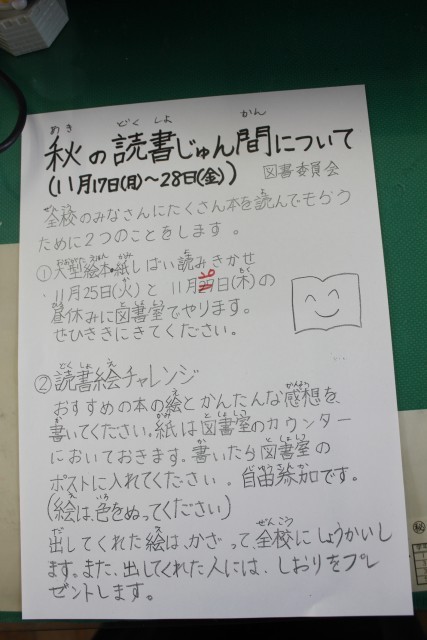 秋の読書じゅん間について
(11月17日(月)～28日(金))
図書委員会
全校のみなさんにたくさん本を読んでもらう
ために2つのことをします。
①大型絵本・紙しばい読みきかせ
11月25日(火)と11月20日(木)の
昼休みに図書室でやります。
ぜひききにきてください。
②読書絵チャレンジ
おすすめの本の絵とかんたんな感想を、
書いてください。紙は図書室のカウンター
においておきます。書いたら図書室の
ポストに入れてください。自由参加です。
(絵は、色をぬってください)
出してくれた絵は、かざって、全校にしょうかいし
ます。また、出してくれた人には、しおりをプレ
ゼントします。